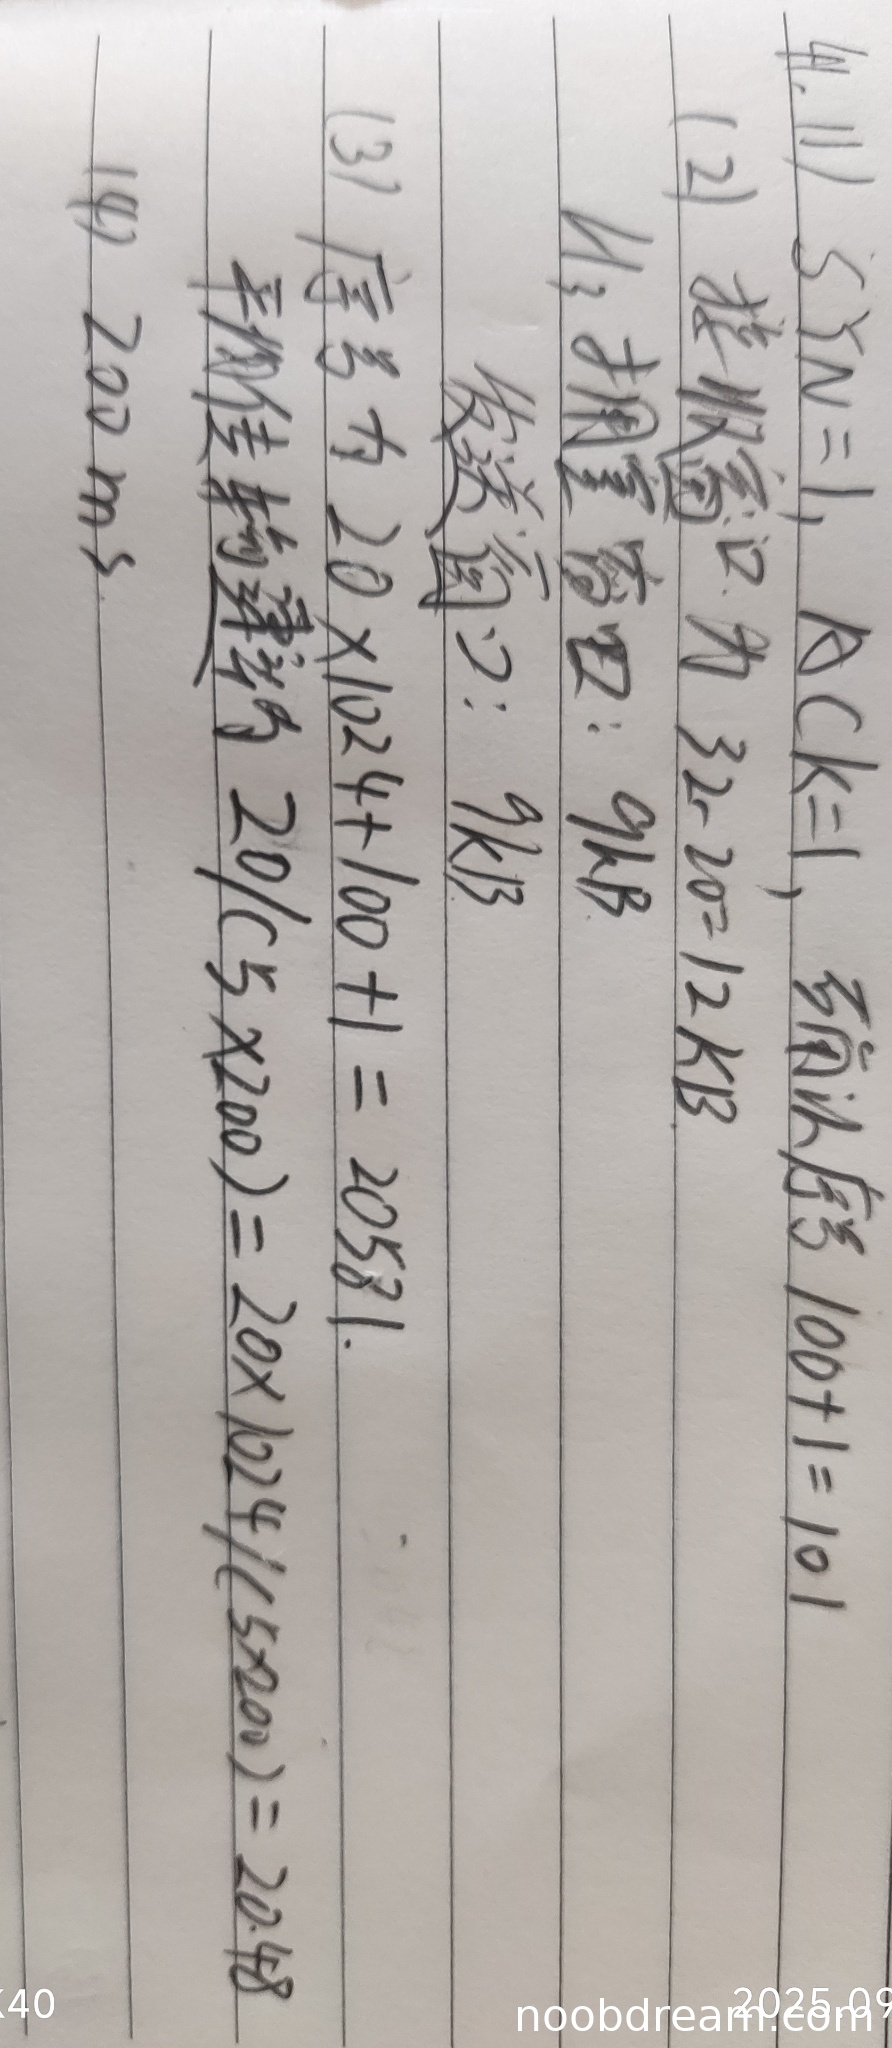 4. (1) SYN=1, ACK=1, 确认序号 100+1=101
(2) 接收窗口为 32-20=12KB
H3 拥塞窗口: 9kB
发送窗口: 9kB
(3) 序号为 20×1024+100+1=20581.
平均传输速率为 20/(5×200)=20×1024/(5×200)=20.48
(4) 200ms.
K40
2025.09
noobdream.com